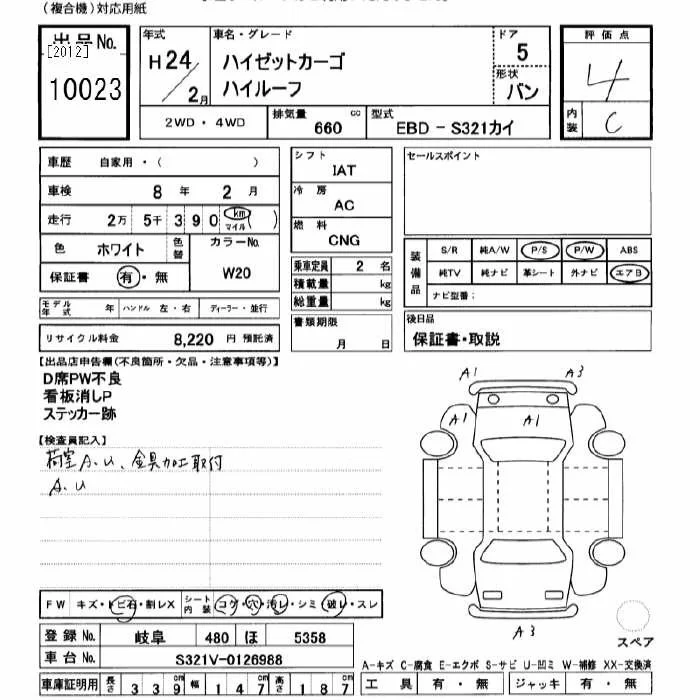 (複合機)対応用紙
出品No.
[2012]
10023
年式
H24/2月
車名・グレード
ハイゼットカーゴ
ハイルーフ
ドア
5
形状
バン
評価点
4
内装
C
2WD・4WD
排気量
660
cc
型式
EBD－S321カイ
車歴 自家用・( )
車検 8 年 2 月
走行 2万 5千 3 9 0 km マイル ( )
色 ホワイト 色替
カラーNo.
W20
保証書 有・無
モデル年式 年 ハンドル 左・右 ディーラー・並行
リサイクル料金 8,220 円 預託済
シフト
IAT
冷房
AC
燃料
CNG
乗車定員 2 名
積載量 kg
総重量 kg
書類期限
月 日
セールスポイント
装備品
S/R 純A/W P/S P/W ABS
純TV 純ナビ 革シート 外ナビ エアB
ナビ型番:
後日品
保証書・取説
【出品店申告欄(不良箇所・欠品・注意事項等)】
D席PW不良
看板消しP
ステッカー跡
【検査員記入】
荷室A.U、金具加工取付
A.U
A1 A3
A1 A1
A3
スペア
FW キズ・トビ石・割レX シート内装 コゲ・穴・汚レ・シミ・破レ・スレ
登録No. 岐阜 480 ほ 5358
車台No. S321V-0126988
車庫証明用 長さ 3 3 9 cm 幅 1 4 7 cm 高さ 1 8 7 cm
A-キズ C-腐食 E-エクボ S-サビ U-凹ミ W-補修 XX-交換済
工具 有・無 ジャッキ 有・無